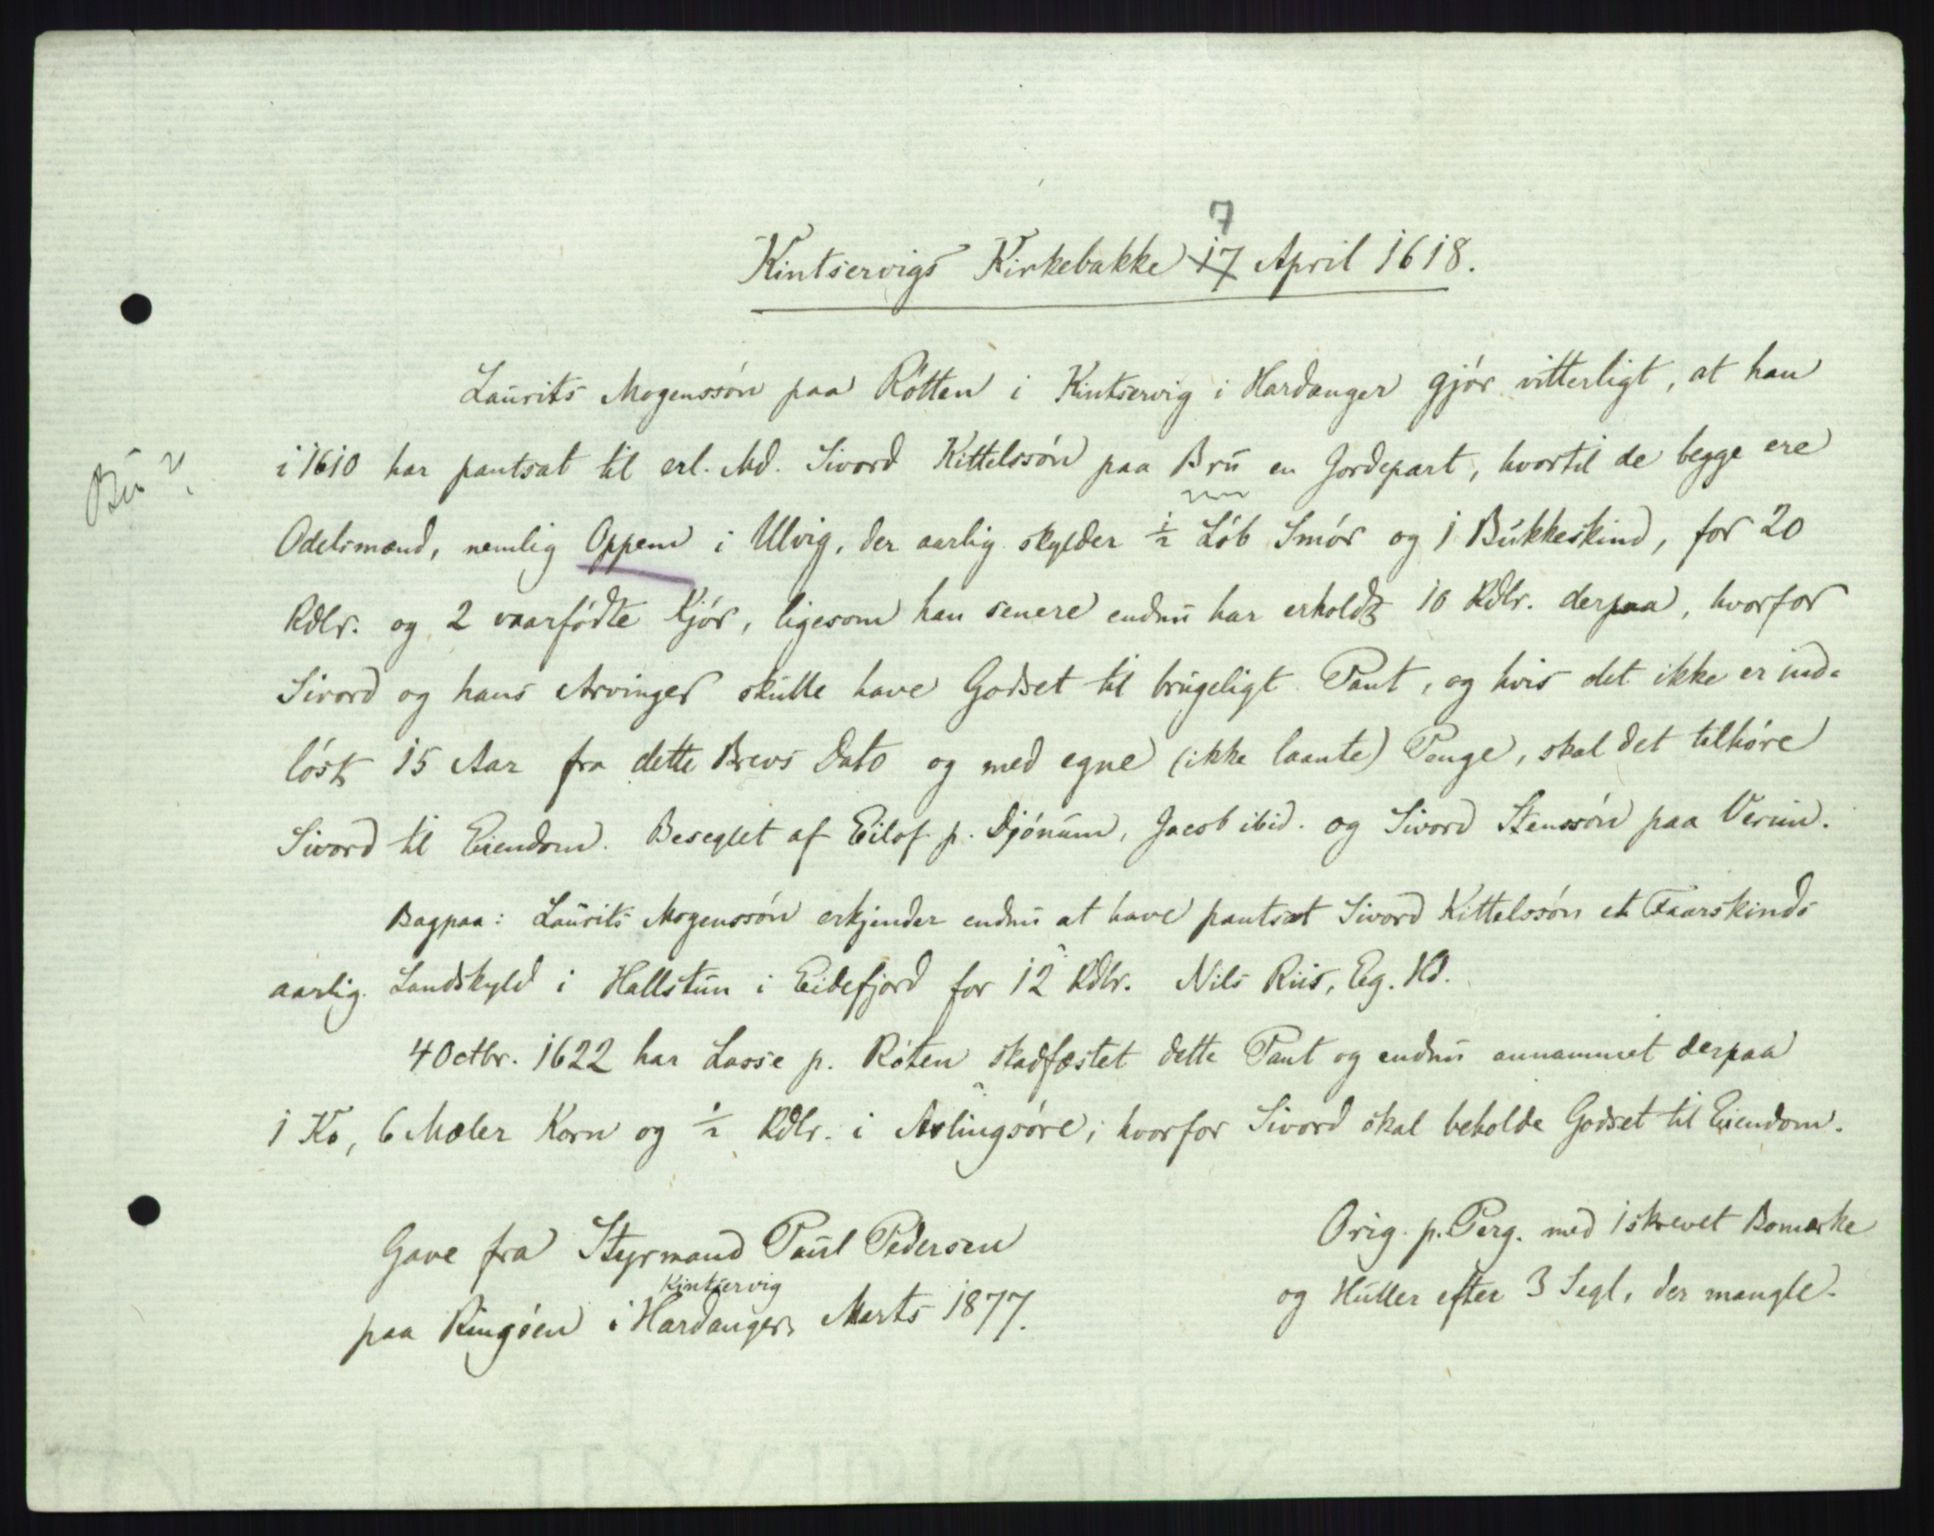 7
Kintservigs Kirkebakke 17 April 1618.
Laurits Mogenssön paa Rötten i Kintservig i Hardanger gjör vitterligt, at han
i 1610 har pantsat til erl. Md. Sivord Kittelssön paa Bru en Jordepart, hvortil de begge ere
Bu?
Odelsmænd, nemlig Oppem i Ulvig, der aarlig skylder ½ Löb Smör og 1 Bukkeskind, for 20
Rdlr. og 2 vaarfödte Kjör, ligesom han senere endnu har erholdt 10 Rdlr. derpaa, hvorfor
Sivord og hans Arvinger skulle have Godset til brugeligt Pant, og hvis det ikke er ind-
löst 15 Aar fra dette Brevs Dato og med egne (ikke laante) Penge, skal det tilhöre
Sivord til Eiendom. Beseglet af Eilof p. Djönum, Jacob ibid. og Sivord Stenssön paa Verim.
Bagpaa: Laurits Mogenssön erkjender endnu at have pantsat Sivord Kittelssön et Faarskinds
aarlig Landskyld i Hallstun i Eidefjord for 12 Rdlr. Nils Riis, Eg. Hd.
4 Octbr. 1622 har Lasse p. Röten stadfæstet dette Pant og endnu annammet derpaa
1 Ko, 6 Mæler Korn og ½ Rdlr. i Arlingsöre, hvorfor Sivord skal beholde Godset til Eiendom.
Gave fra Styrmand Paul Pedersen
Kintservig
paa Ringöen i Hardanger, Marts 1877.
Orig. p. Perg. med 1 skrevet Bomærke
og Huller efter 3 Segl, der mangle.